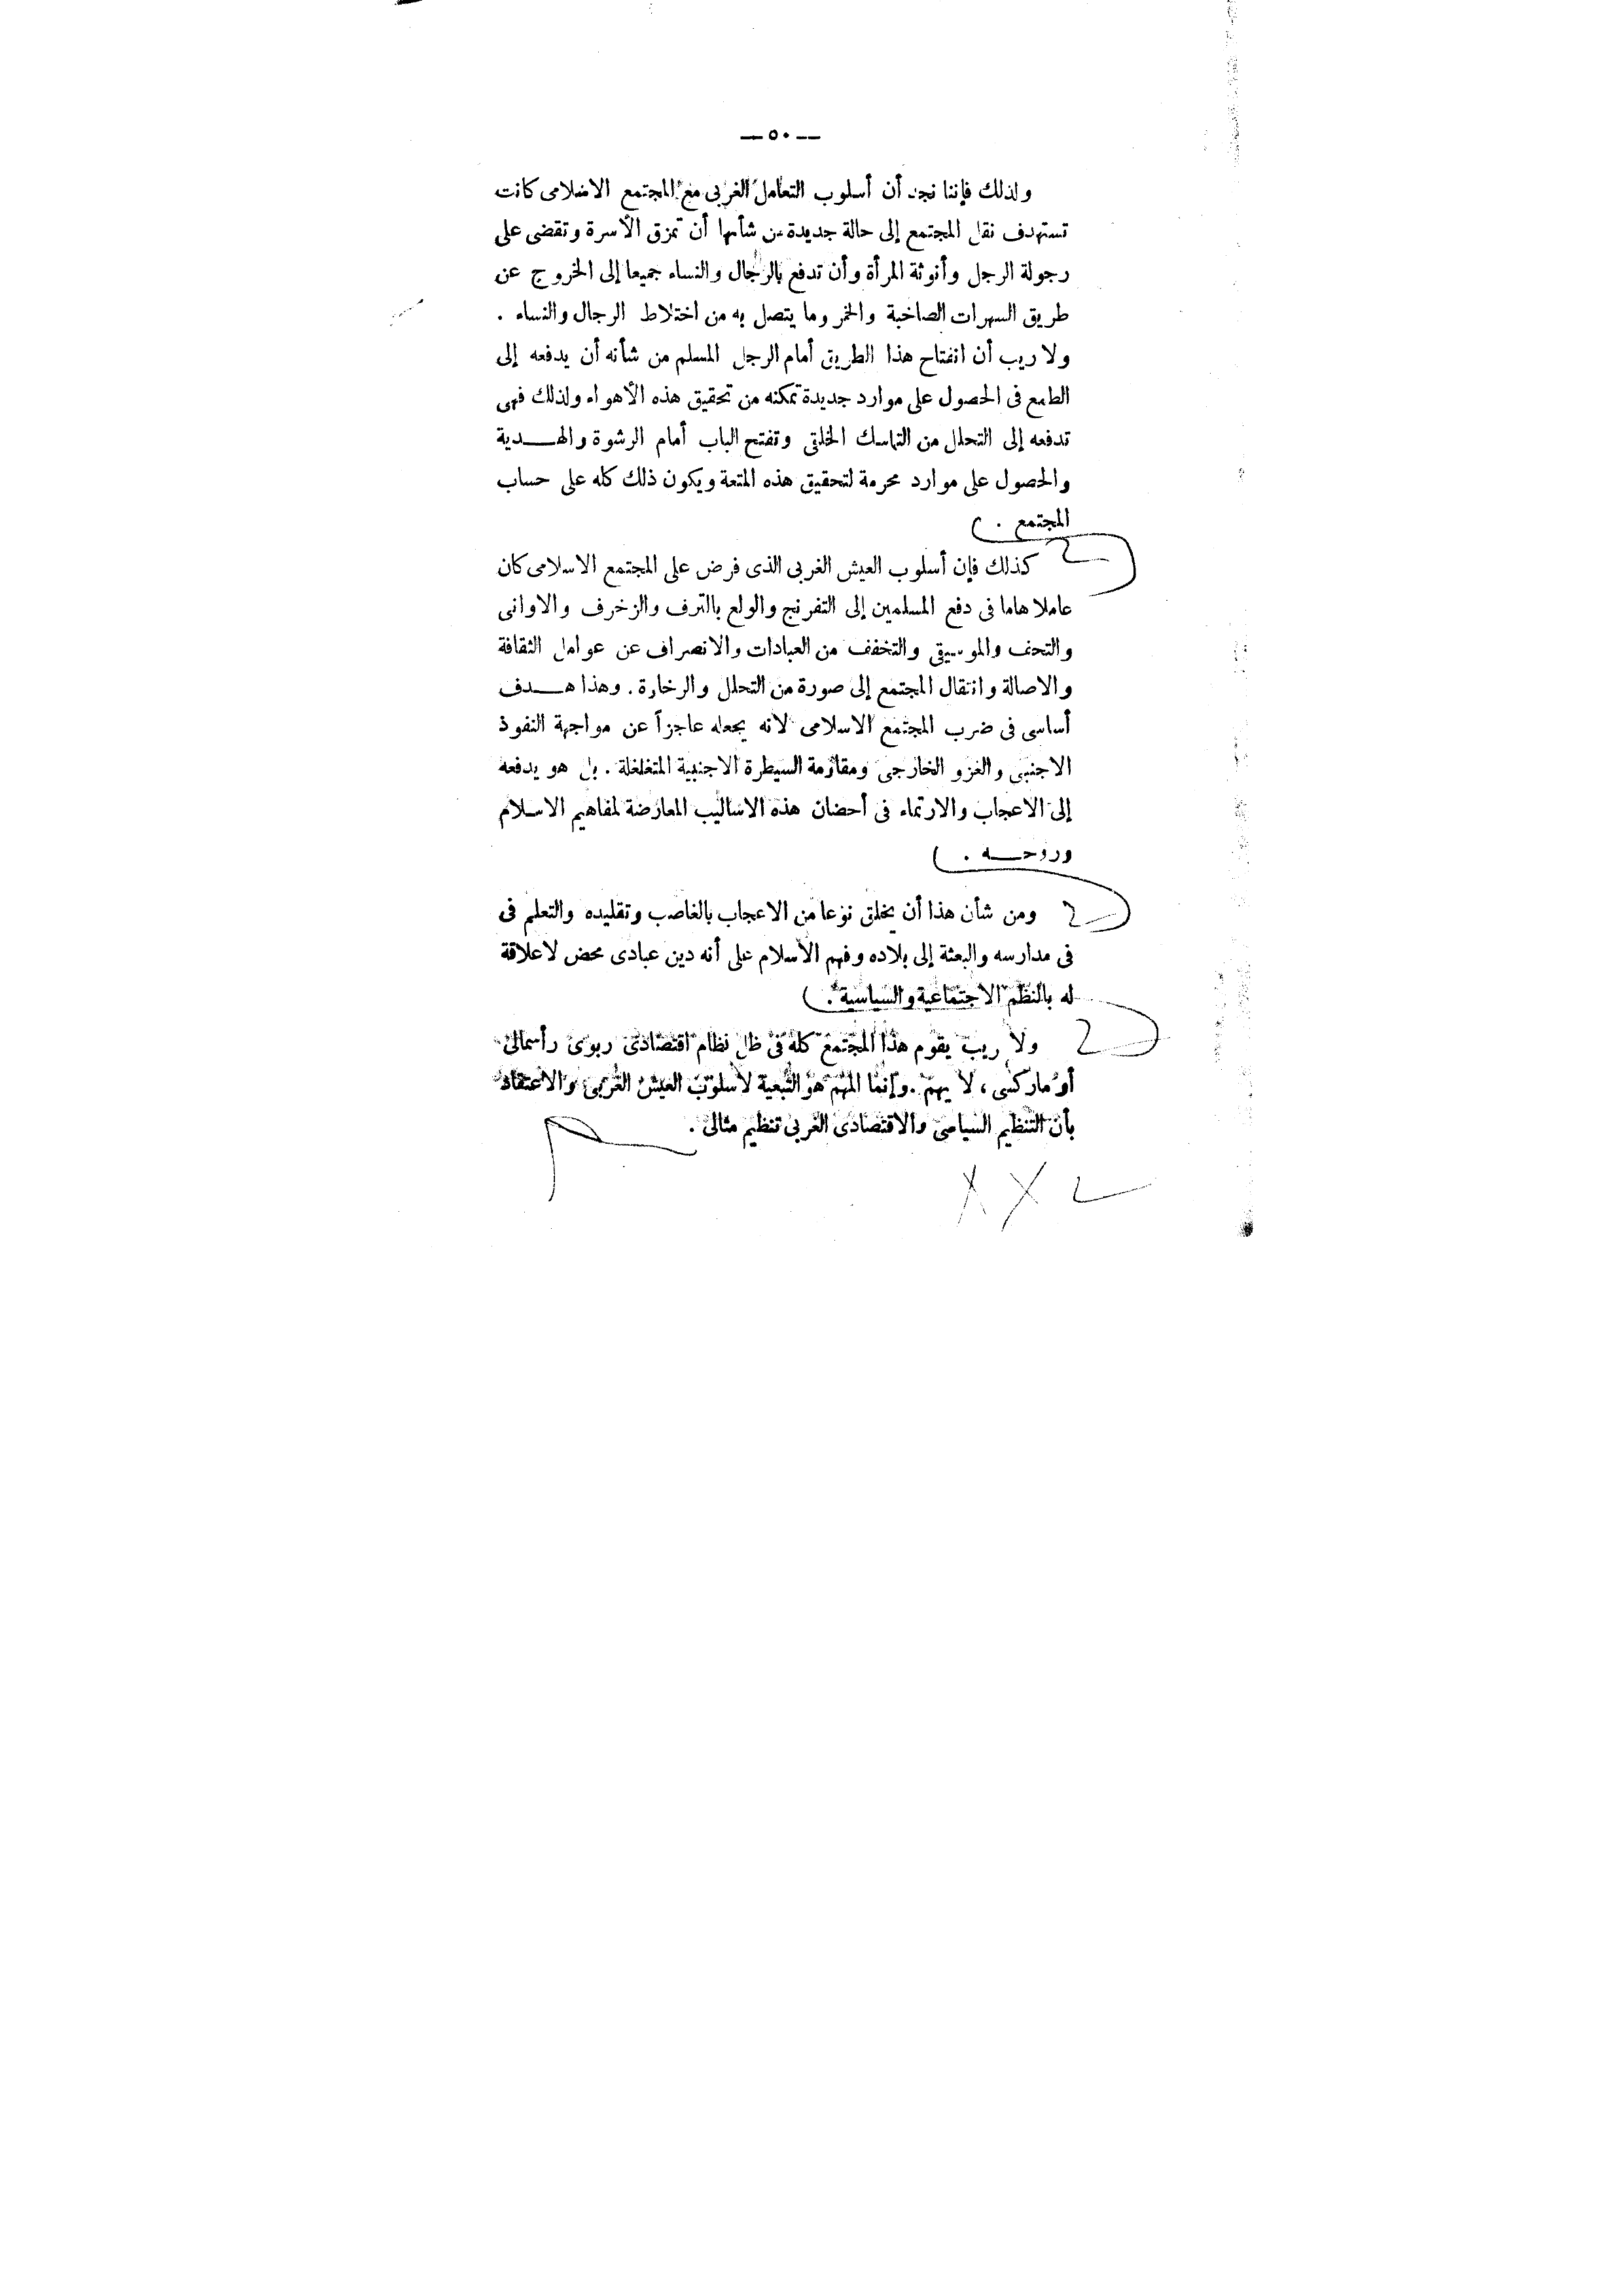 — ٥٠ —
ولذلك فإننا نجد أن أسلوب التعامل الغربى مع المجتمع الاسلامى كانت
تستهدف نقل المجتمع إلى حالة جديدة من شأنها أن تمزق الأسرة وتقضى على
رجولة الرجل وأنوثة المرأة وأن تدفع بالرجال والنساء جميعا إلى الخروج عن
طريق السهرات الصاخبة والخمر وما يتصل به من اختلاط الرجال والنساء .
ولا ريب أن انفتاح هذا الطريق أمام الرجل المسلم من شأنه أن يدفعه إلى
الطمع فى الحصول على موارد جديدة تمكنه من تحقيق هذه الأهواء ولذلك فهى
تدفعه إلى التحلل من التماسك الخلقى وتفتح الباب أمام الرشوة والهــدية
والحصول على موارد محرمة لتحقيق هذه المتعة ويكون ذلك كله على حساب
المجتمع .
كذلك فإن أسلوب العيش الغربى الذى فرض على المجتمع الاسلامى كان
عاملا هاما فى دفع المسلمين إلى التفرنج والولع بالترف والزخرف والاوانى
والتحف والموسيقى والتخفف من العبادات والانصراف عن عوامل الثقافة
والاصالة وانتقال المجتمع إلى صورة من التحلل والرخاوة . وهذا هــدف
أساسى فى ضرب المجتمع الاسلامى لانه يجعله عاجزاً عن مواجهة النفوذ
الاجنبى والغزو الخارجى ومقاومة السيطرة الاجنبية المتغلغلة . بل هو يدفعه
إلى الاعجاب والارتماء فى أحضان هذه الاساليب المعارضة لمفاهيم الاسلام
وروحــه .
ومن شأن هذا أن يخلق نوعا من الاعجاب بالغاصب وتقليده والتعلم فى
فى مدارسه والبعثة إلى بلاده وفهم الأسلام على أنه دين عبادى محض لاعلاقة
له بالنظم الاجتماعية والسياسية .
ولا ريب يقوم هذا المجتمع كله فى ظل نظام اقتصادى ربوى رأسمالى
أو ماركسى ، لا يهم . وإنما المهم هو التبعية لأسلوب العيش الغربى والاعتقاد
بأن التنظيم السياسى والاقتصادى الغربى تنظيم مثالى .